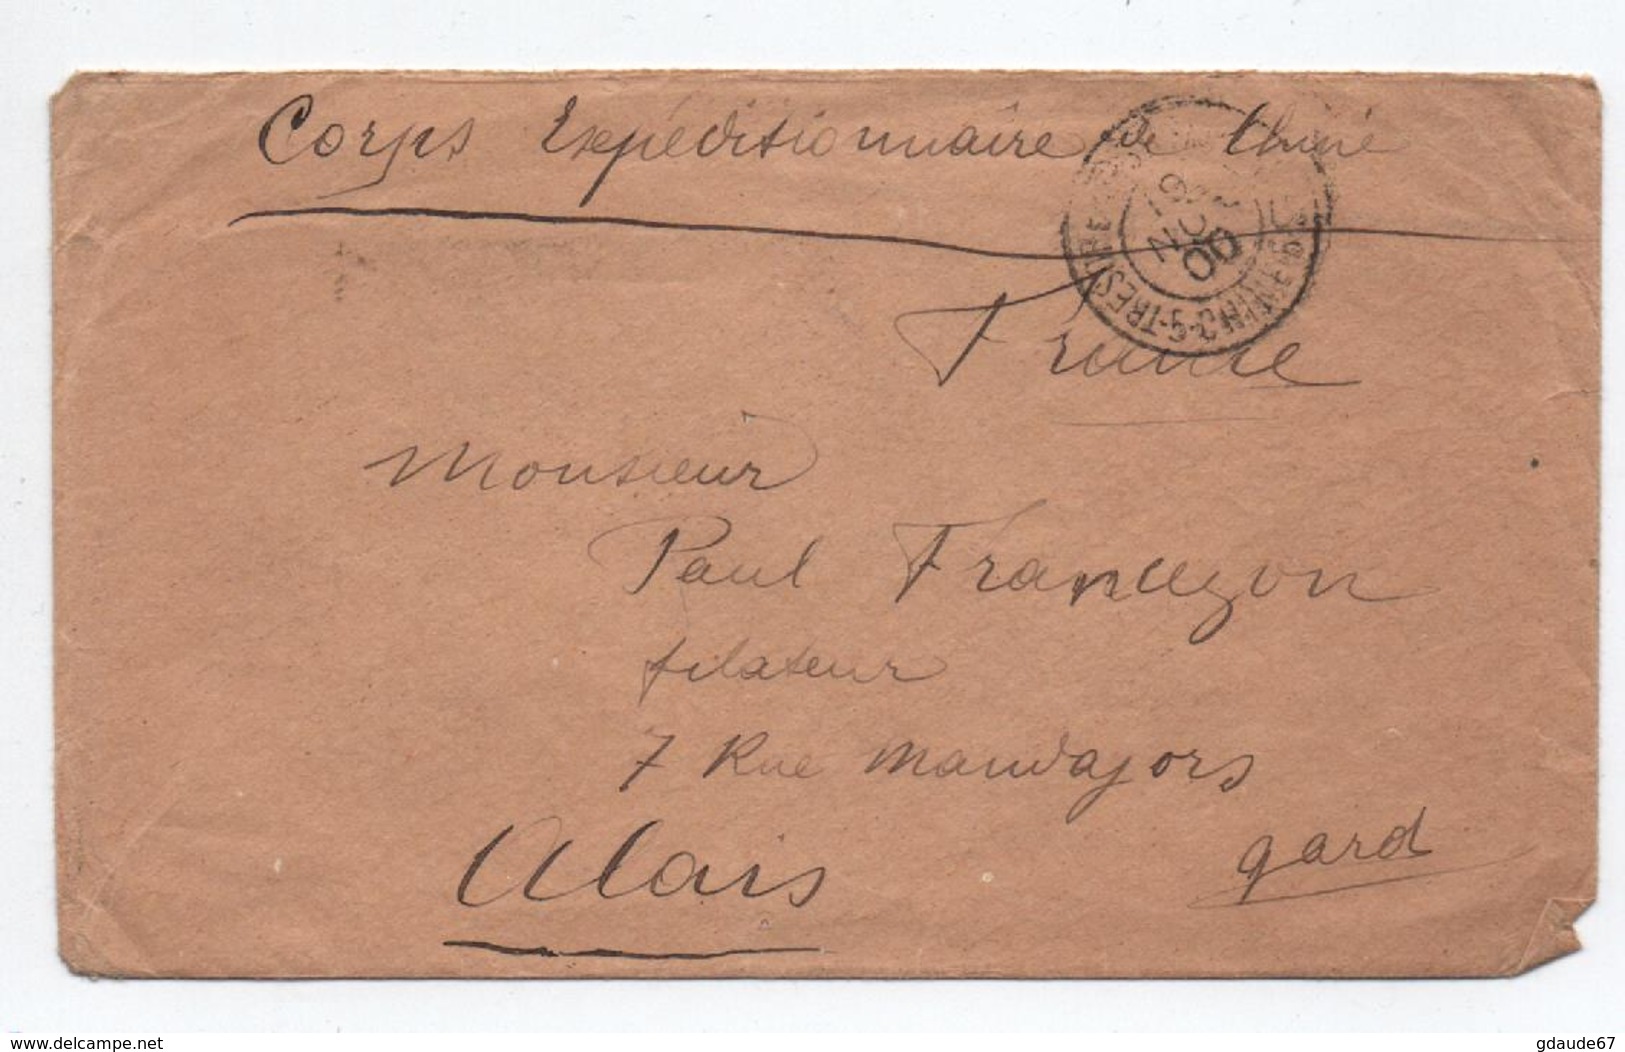 Corps Expéditionnaire de Chine
19
NOV
00
France
Monsieur
Paul Francezon
filateur
7 Rue Mandajors
Alais
gard
www.delcampe.net
gdaude67